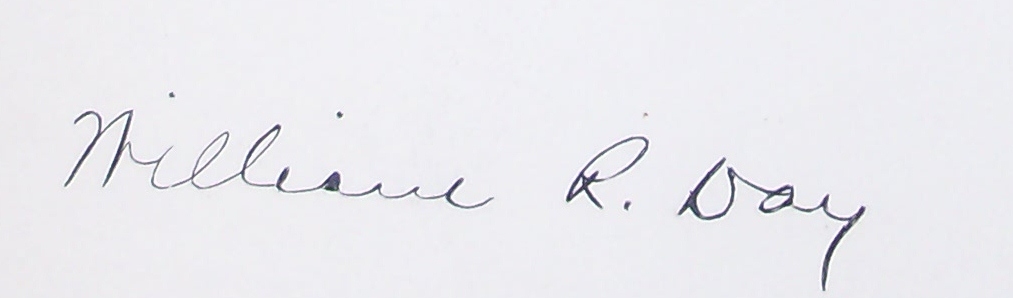 William R. Day